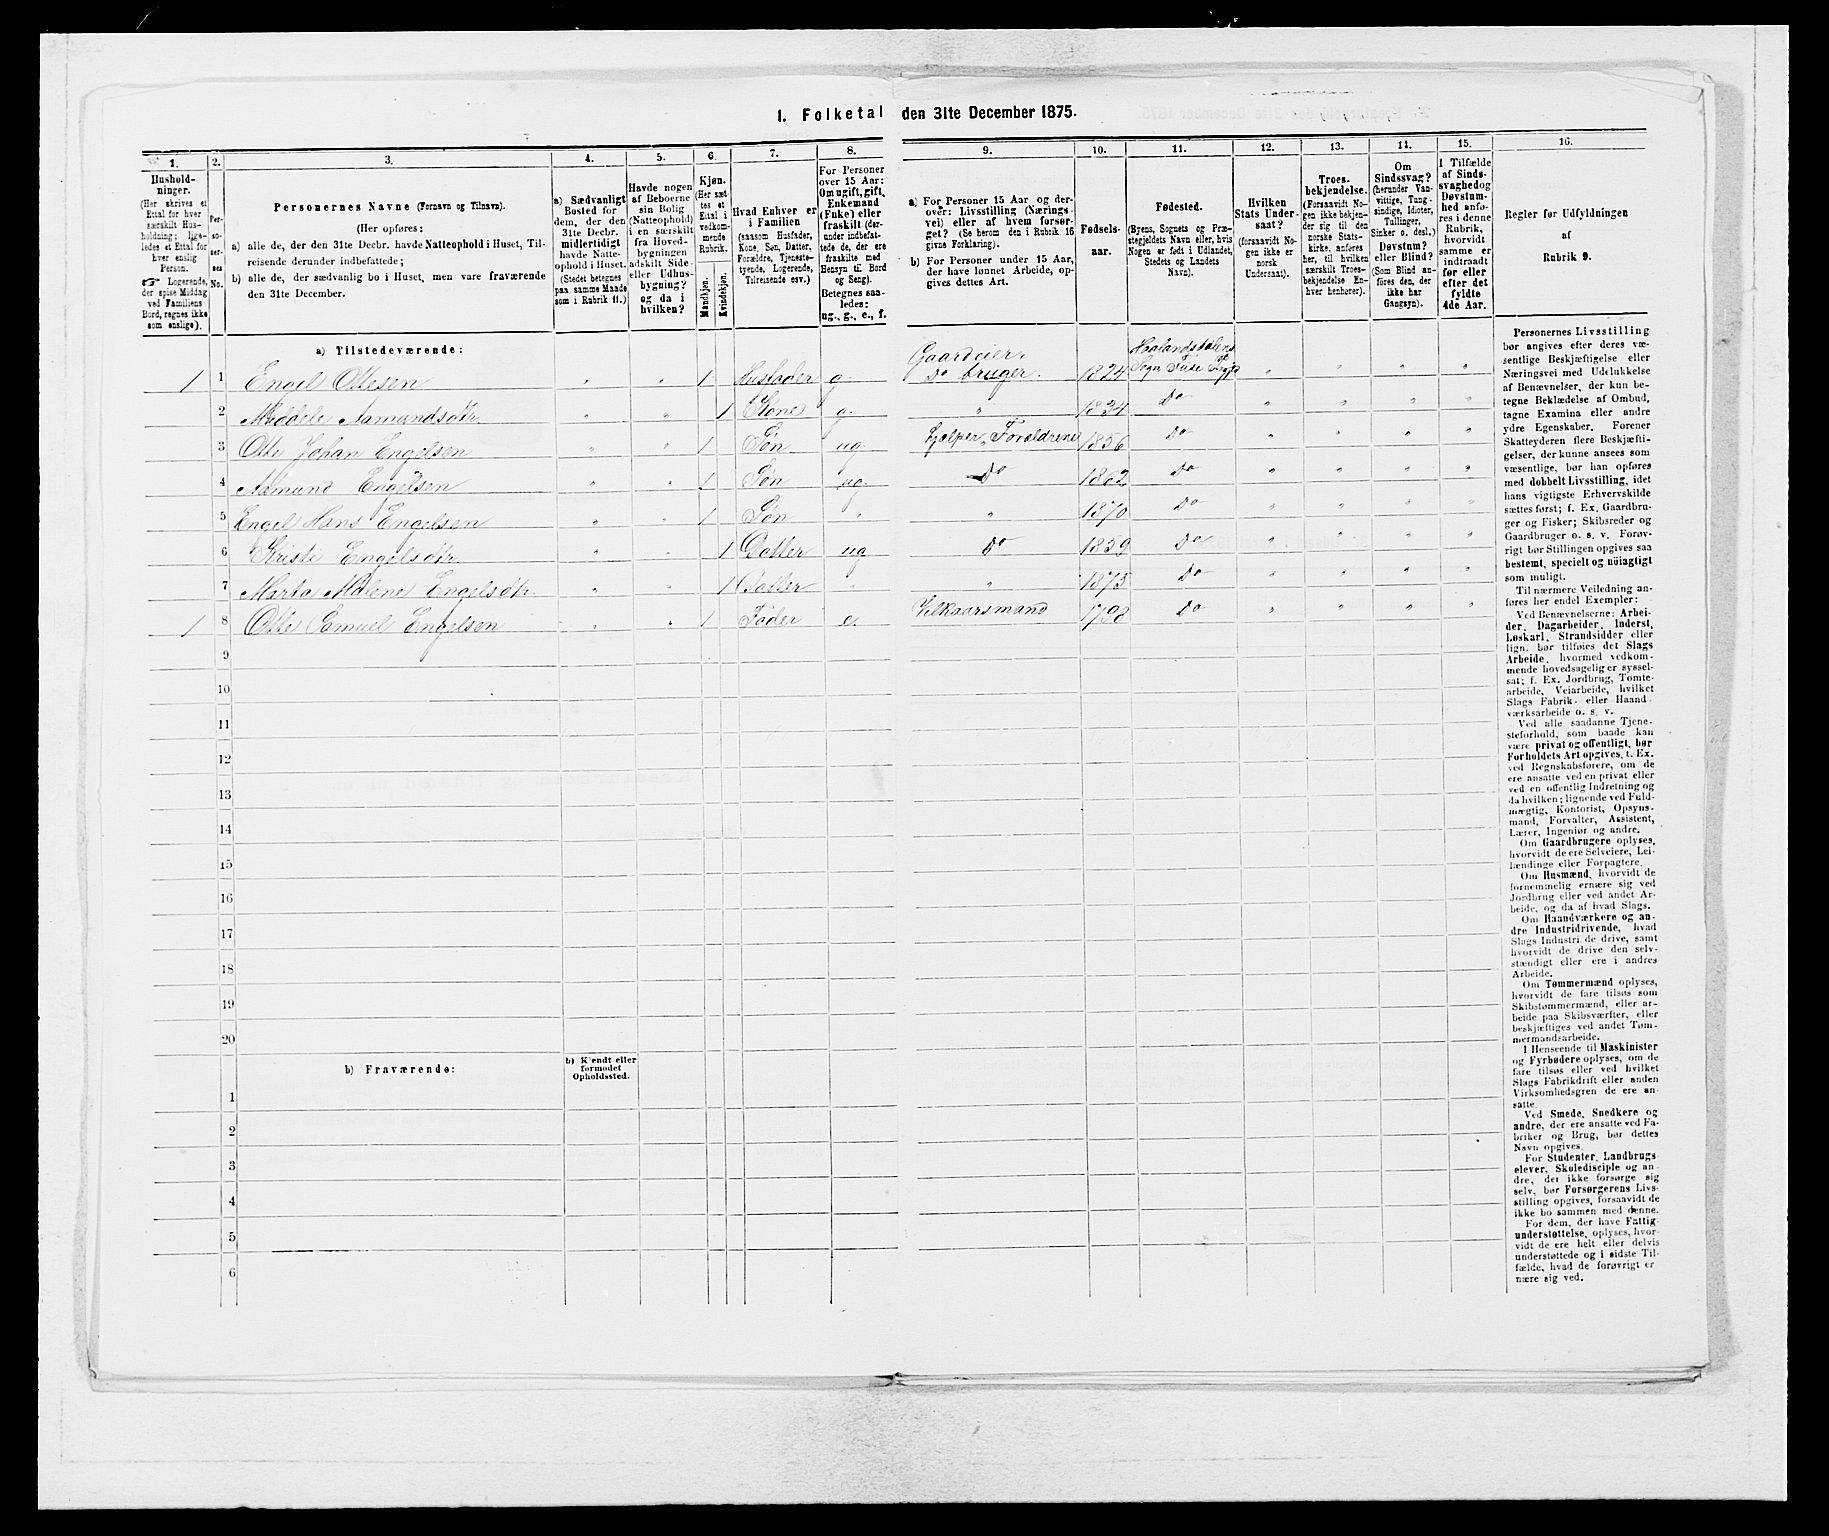 1. Folketal den 31te December 1875.
1. 2. 3. 4. 5. 6. 7. 8. 9. 10. 11. 12. 13. 14. 15. 16.
Hushold-
ninger.
(Her skrives et
Ettal for hver
særskilt Hus-
holdning; lige-
ledes et Ettal for
hver enslig
Person.
☞ Logerende,
der spise Middag
ved Familiens
Bord, regnes ikke
som enslige).
Per-
so-
ner-
nes
No.
Personernes Navne (Fornavn og Tilnavn).
(Her opføres:
a) alle de, der den 31te Decbr. havde Natteophold i Huset, Til-
reisende derunder indbefattede;
b) alle de, der sædvanlig bo i Huset, men vare fraværende
den 31te December.
a) Sædvanligt
Bosted for
dem, der den
31te Decbr.
midlertidigt
havde Natte-
ophold i Huset.
(Stedet betegnes
paa samme Maade
som i Rubrik 11.)
Havde nogen
af Beboerne
sin Bolig
(Natteophold)
i en særskilt
fra Hoved-
bygningen
adskilt Side-
eller Udhus-
bygning?
og da i
hvilken?
Kjøn.
(Her sæt-
tes et
Ettal i
vedkom-
mende
Rubrik.
Mandkjøn.
Kvindekjøn.
Hvad Enhver er
i Familien
(saasom Husfader,
Kone, Søn, Datter,
Forældre, Tjeneste-
tyende, Logerende,
Tilreisende osv.)
For Personer
over 15 Aar:
Om ugift, gift,
Enkemand
(Enke) eller
fraskilt (der-
under indbefat-
tede de, der ere
fraskilte med
Hensyn til Bord
og Seng).
Betegnes saa-
ledes:
ug., g., e., f.
a) For Personer 15 Aar og der-
over: Livsstilling (Nærings-
vei) eller af hvem forsør-
get? (Se herom den i Rubrik 16
givne Forklaring).
b) For Personer under 15 Aar,
der have lønnet Arbeide, op-
gives dettes Art.
Fødsels-
aar.
Fødested.
(Byens, Sognets og Præ-
stegjeldets Navn eller, hvis
Nogen er født i Udlandet,
Stedets og Landets
Navn).
Hvilken
Stats Under-
saat?
(forsaavidt No-
gen ikke er
norsk
Undersaat).
Troes-
bekjendelse.
(Forsaavidt No-
gen ikke bekjen-
der sig til den
norske Stats-
kirke, anføres
her, til hvilken
særskilt Troes-
bekjendelse En-
hver henhører).
Om
Sindssvag?
(herunder Van-
vittige, Tung-
sindige, Idioter,
Tullinger,
Sinker o. desl.)
Døvstum?
eller Blind?
(Som Blind an-
føres den, der
ikke har
Gangsyn).
I Tilfælde
af Sinds-
svaghed og
Døvstum-
hed anfø-
res i denne
Rubrik,
hvorvidt
samme er
indtraadt
før eller
efter det
fyldte
4de Aar.
Regler for Udfyldningen
af
Rubrik 9.
a) Tilstedeværende:
1 1 Engel Ottesen " " 1 Husfader g. Gaardeier. Do bruger. 1824 Haalandsdalens Sogn Fuse " " " "
2 Aamundsdtr. " " 1 Kone g. " 1834 Do " " " "
3 Otte Johan Engelsen " " 1 Søn ug. hjelper Forældrene 1856 Do " " " "
4 Aamund Engelsen " " 1 Søn ug Do 1862 Do " " " "
5 Engel Hans Engelsen " " 1 Søn " " 1870 Do " " " "
6 Kristi Engelsdtr. " " 1 Datter ug Do 1859 Do " " " "
7 Marta Engelsdtr. " " 1 Datter " " 1875 Do " " " "
1 8 Otte Samuel Engelsen " " 1 Fader e. Vilkaarsmand 1798 Do " " " "
9
10
11
12
13
14
15
16
17
18
19
20
b) Fraværende:
b) Kjendt eller
formodet
Opholdssted.
1
2
3
4
5
6
Personernes Livsstilling
bør angives efter deres væ-
sentlige Beskjæftigelse eller
Næringsvei med Udelukkelse
af Benævnelser, der kun be-
tegne Beklædelse af Ombud,
tagne Examina eller andre
ydre Egenskaber. Forener
Skatteyderen flere Beskjæfti-
gelser, der kunne ansees som
væsentlige, bør han opføres
med dobbelt Livsstilling, idet
hans vigtigste Erhvervskilde
sættes først; f. Ex. Gaardbru-
ger og Fisker; Skibsreder og
Gaardbruger o. s. v. Forøv-
rigt bør Stillingen opgives saa
bestemt, specielt og nöiagtigt
som muligt.
Til nærmere Veiledning an-
føres her endel Exempler:
Ved Benævnelserne: Arbei-
der, Dagarbeider, Inderst,
Løskarl, Strandsidder eller
lign. bør tilføies det Slags
Arbeide, hvormed vedkom-
mende hovedsagelig er syssel-
sat; f. Ex. Jordbrug, Tomte-
arbeide, Veiarbeide, hvilket
Slags Fabrik- eller Haand-
værksarbeide o. s. v.
Ved alle saadanne Tjene-
steforhold, som baade kan
være privat og offentligt, bør
Forholdets Art opgives, t. Ex.
ved Regnskabsførere, om de
ere ansatte ved en privat eller
ved en offentlig Indretning og
da hvilken; lignende ved Fuld-
mægtig, Kontorist, Opsyns-
mand, Forvalter, Assistent,
Lærer, Ingeniør og andre.
Om Gaardbrugere oplyses,
hvorvidt de ere Selveiere, Lei-
lændinge eller Forpagtere.
Om Husmænd, hvorvidt de
fornemmelig ernære sig ved
Jordbrug eller ved andet Ar-
beide, og da af hvad Slags.
Om Haandværkere og an-
dre Industridrivende, hvad
Slags Industri de drive, samt
hvorvidt de drive den selv-
stændigt eller ere i andres
Arbeide.
Om Tømmermænd oplyses,
hvorvidt de fare tilsøs som
Skibstømmermænd, eller ar-
beide paa Skibsværfter, eller
beskjæftiges ved andet Tøm-
mermandsarbeide.
I Henseende til Maskinister
og Fyrbødere oplyses, om de
fare tilsøs eller ved hvilket
Slags Fabrikdrift eller anden
Virksomhedsgren de ere an-
satte.
Ved Smede, Snedkere og
andre, der ere ansatte ved Fa-
briker og Brug, bør dettes
Navn opgives.
For Studenter, Landbrugs-
elever, Skoledisciple og an-
dre, det ikke forsørge sig
selv, bør Forsørgerens Livs-
stilling opgives, forsaavidt de
ikke bo sammen med denne.
For dem, der have Fattig-
understøttelse, oplyses, hvor-
vidt de ere helt eller delvis
understøttede og i sidste Til-
fælde, hvad de forøvrigt er
nære sig ved.